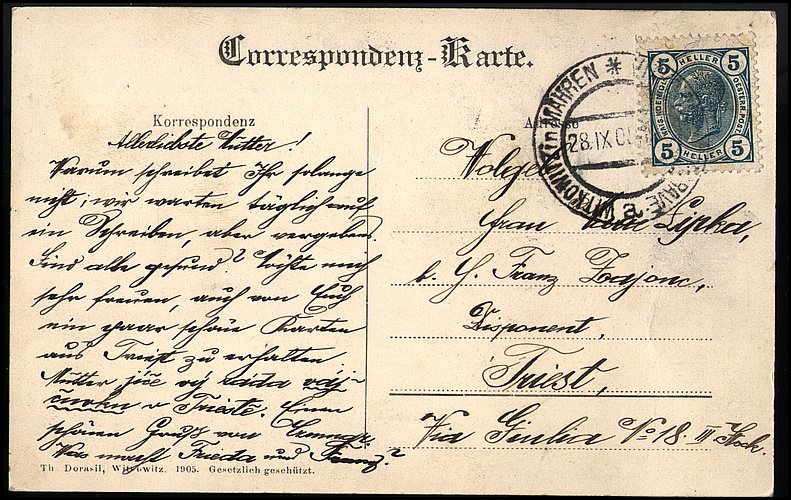 Correspondenz-Karte.
Korrespondenz
Allerliebste Mutter!
Warum schreibet Ihr solange
nicht; wir warten täglich auf
ein Schreiben, aber vergebens.
Sind alle gesund? Möchte mich
sehr freuen, auch von Euch
ein paar schöne Karten
aus Triest zu erhalten.
Mutter ráda
v Trieste. Einen
schönen Gruß von
Was macht Frieda und Franz?
Th. Dorasil, Witkowitz. 1905. Gesetzlich geschützt.
WITKOWITZ in MÄHREN *
28.IX.0
5 HELLER 5
KAIS. KOENIGL. OESTERR. POST
5 HELLER 5
Frau Lipka,
b. H. Franz Zajonc,
Disponent,
Triest,
Via Giulia No 18. III Stock.